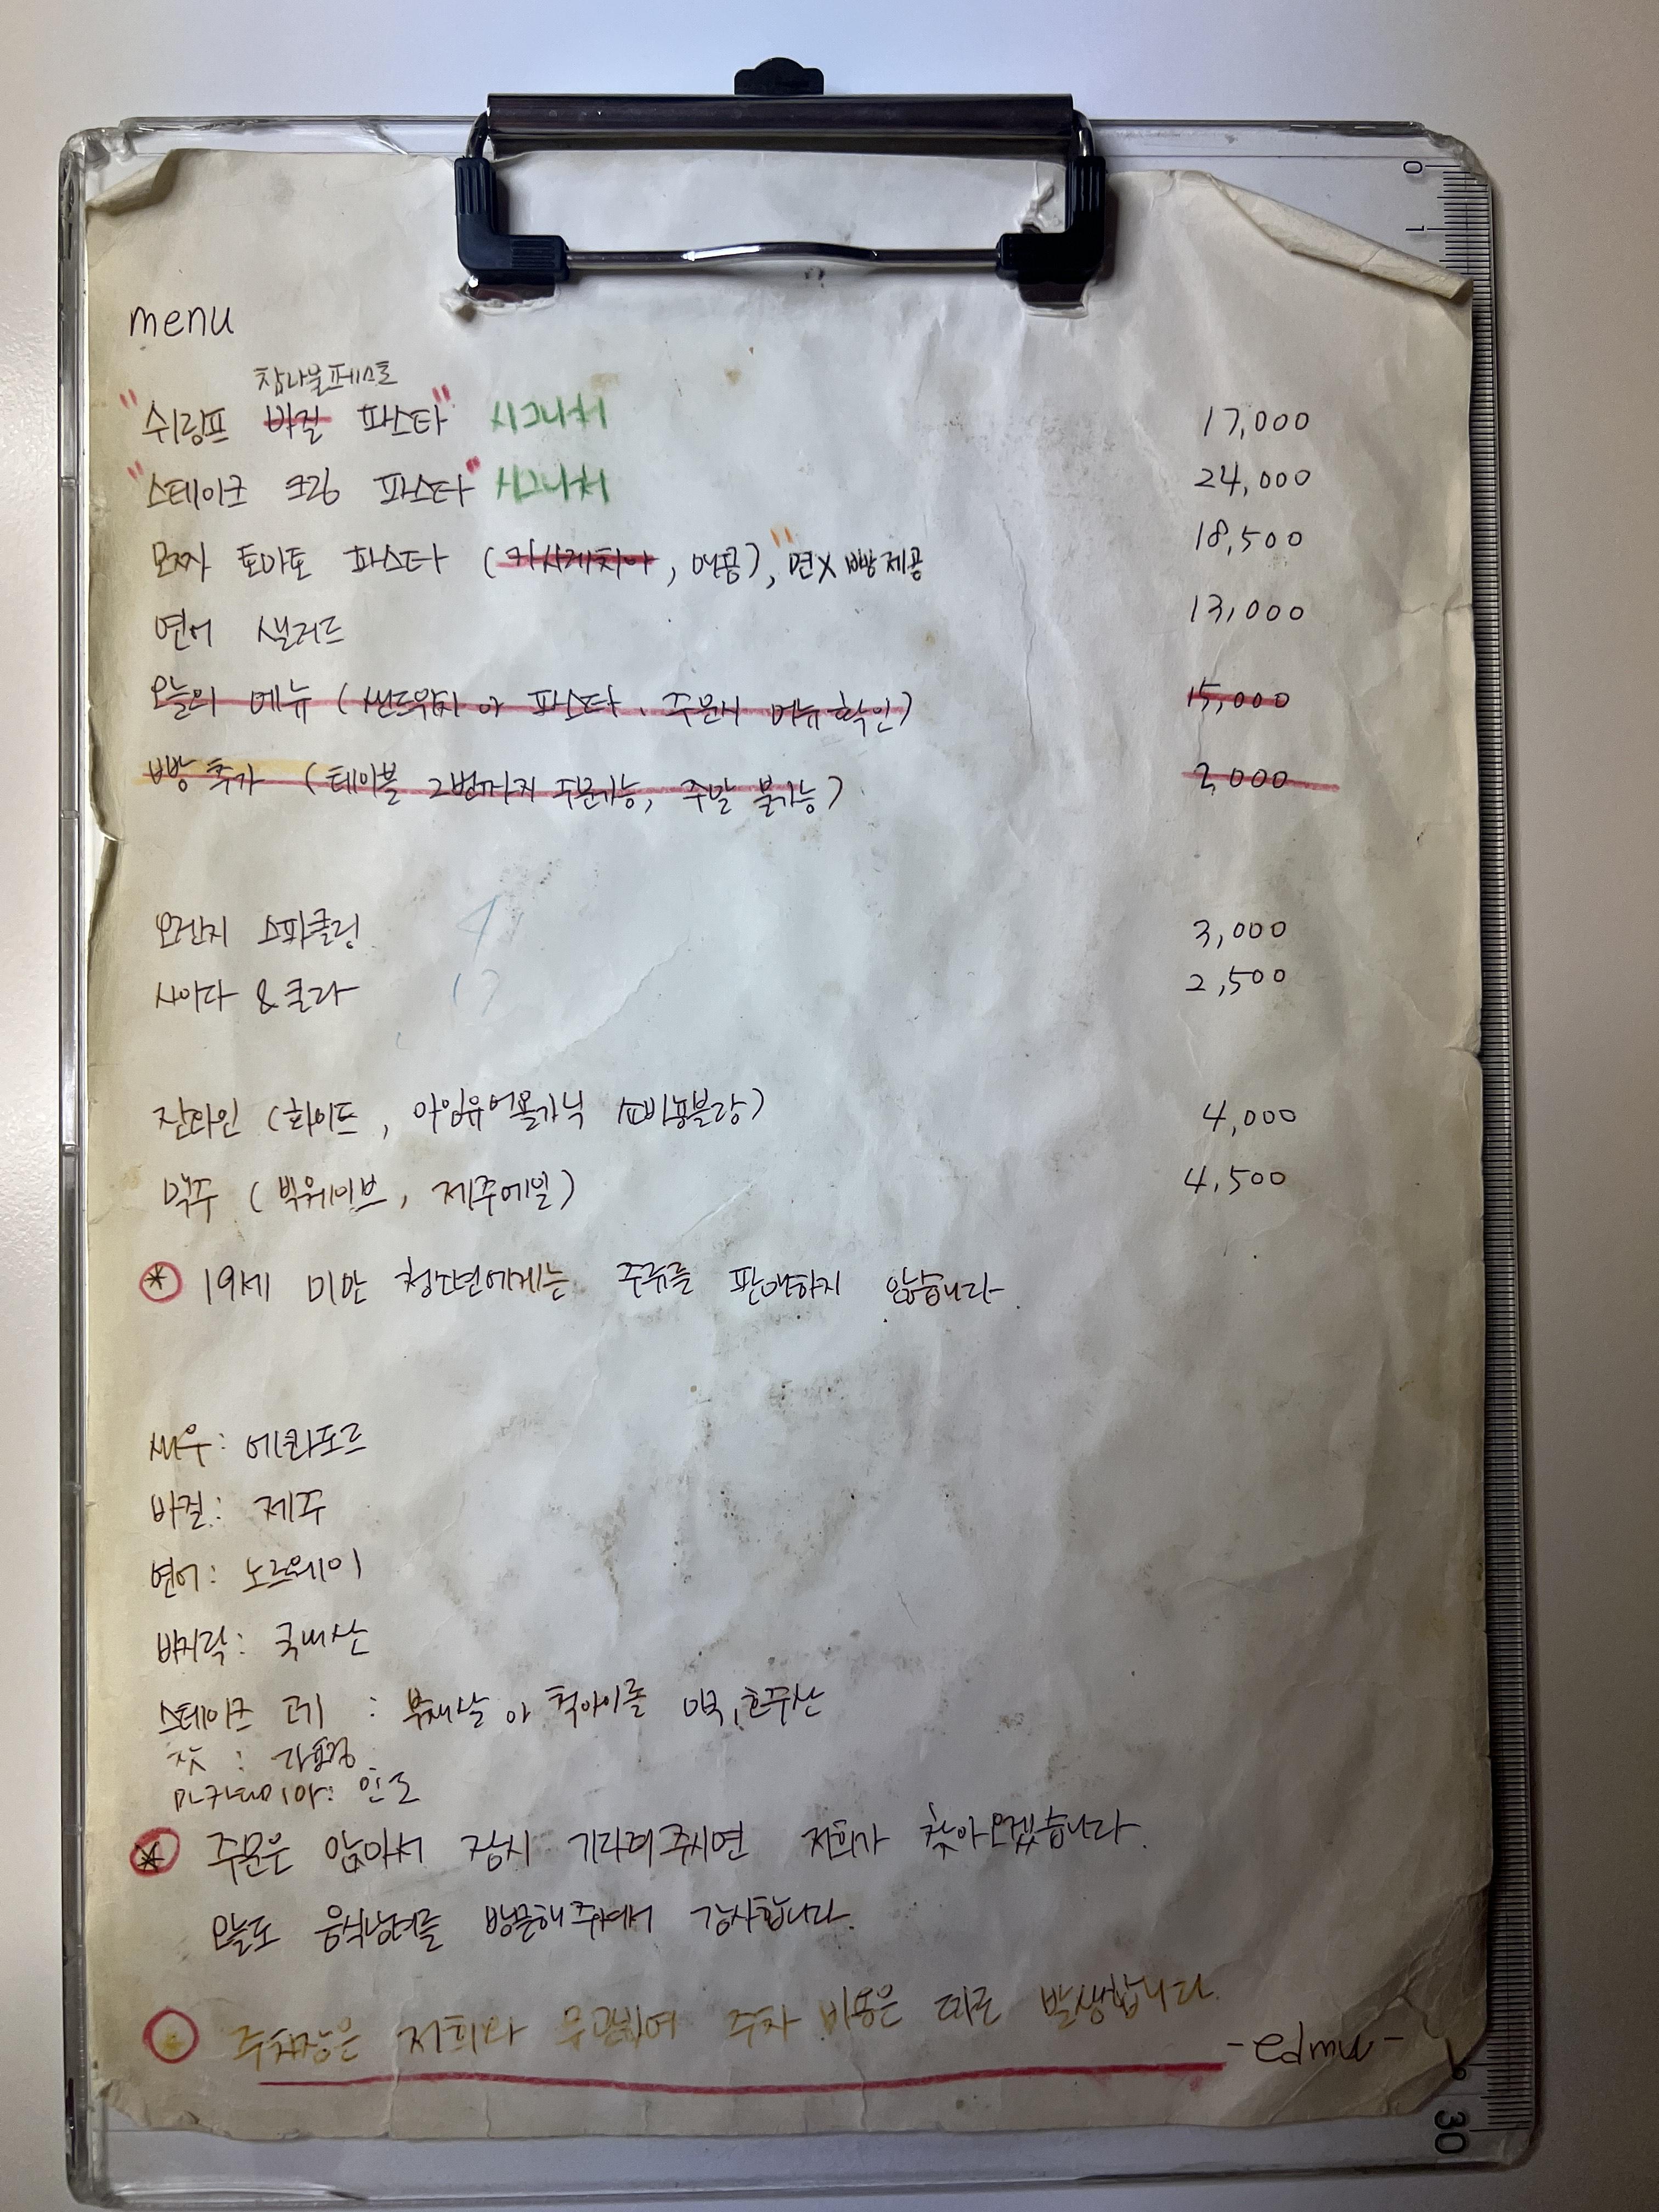 menu
참나물페스토
"쉬림프 바질 파스타" 시그니처 17,000
"스테이크 크림 파스타" 시그니처 24,000
모짜 토마토 파스타 (카사레치아, 매콤), "면X 빵 제공 18,500
연어 샐러드 13,000
오늘의 메뉴 (샌드위치 or 파스타, 주문시 메뉴 확인) 15,000
빵 추가 (테이블 2번까지 주문가능, 주말 불가능) 2,000
오렌지 스파클링 3,000
사이다 & 콜라 2,500
잔와인 (화이트, 아임유어올가닉 쇼비뇽블랑) 4,000
맥주 (빅웨이브, 제주에일) 4,500
* 19세 미만 청소년에게는 주류를 판매하지 않습니다.
새우: 에콰도르
바질: 제주
연어: 노르웨이
바지락: 국내산
스테이크 고기 : 부채살 or 척아이롤 미국, 호주산
잣 : 가평
마카데미아: 인도
* 주문은 앉아서 잠시 기다려주시면 저희가 찾아오겠습니다.
오늘도 음식남녀를 방문해주셔서 감사합니다.
주차장은 저희와 무관하여 주차 비용은 따로 발생합니다.
-edmw-
0
1
30